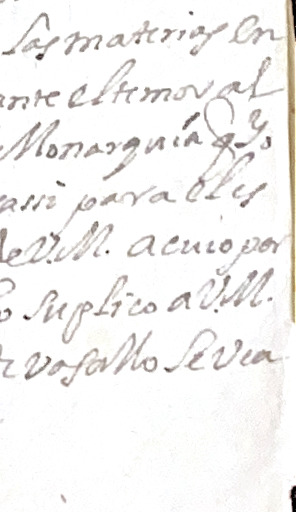 las materias en
ante el temor al
Monarquía q Yo
assi para el is
de V.M. a cuio por
suplico a V.M.
vasallo se vea